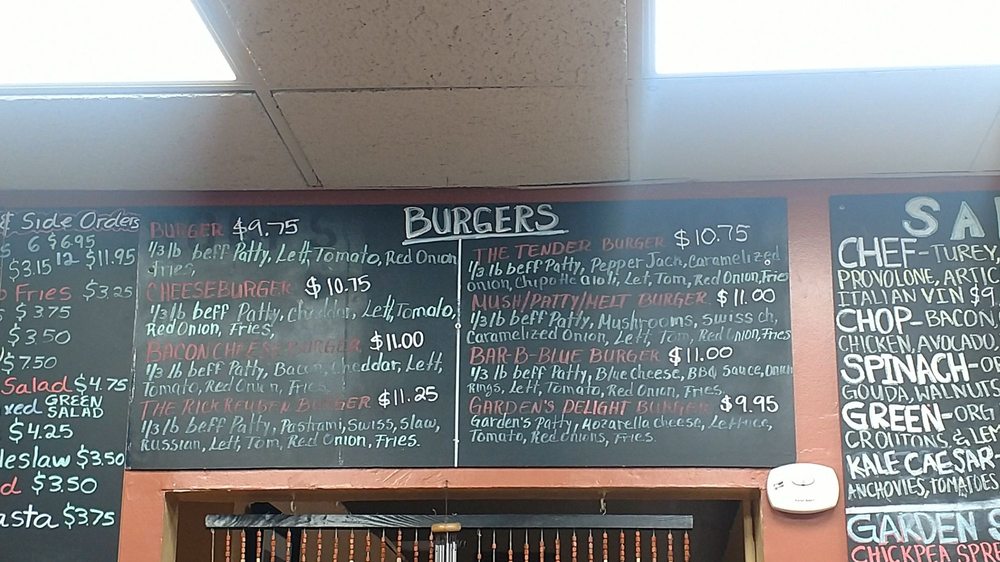 & Side Orders
6 $6.95
$3.15 12 $11.95
Fries $3.25
$3.75
$3.50
$7.50
Salad $4.75
GREEN
SALAD
$4.25
leslaw $3.50
$3.50
asta $3.75
BURGERS
BURGER $9.75
1/3 lb beff Patty, Lett, Tomato, Red Onion
Fries,
CHEESEBURGER $10.75
1/3 lb beff Patty, Cheddar, Lett, Tomato,
Red Onion, Fries,
BACON CHEESE BURGER $11.00
1/3 lb beff Patty, Bacon, Cheddar, Lett,
Tomato, Red Onion, Fries
THE RICK REUBEN BURGER $11.25
1/3 lb beff Patty, Pastrami, Swiss, Slaw,
Russian, Lett, Tom, Red Onion, Fries.
THE TENDER BURGER $10.75
1/3 lb beff Patty, Pepper Jack, Caramelized
Onion, Chipotle aioli, Let, Tom, Red Onion, Fries
MUSH/PATTY/MELT BURGER $11.00
1/3 lb beff Patty, Mushrooms, Swiss ch,
Caramelized Onion, Lett, Tom, Red Onion, Fries
BAR-B-BLUE BURGER $11.00
1/3 lb beff Patty, Blue cheese, BBQ Sauce, Onion
Rings, Lett, Tomato, Red Onion, Fries.
GARDEN'S DELIGHT BURGER $9.95
Garden's Patty, Mozarella cheese, Lettuce,
Tomato, Red Onions, Fries.
SA
CHEF-TUREY,
PROVOLONE, ARTIC
ITALIAN VIN $9
CHOP-BACON,
CHICKEN, AVOCADO,
SPINACH-OR
GOUDA, WALNUTS
GREEN-ORG
CROUTONS, & LEM
KALE CAESAR-
ANCHOVIES, TOMATOES
GARDEN S
CHICKPEA SPRE